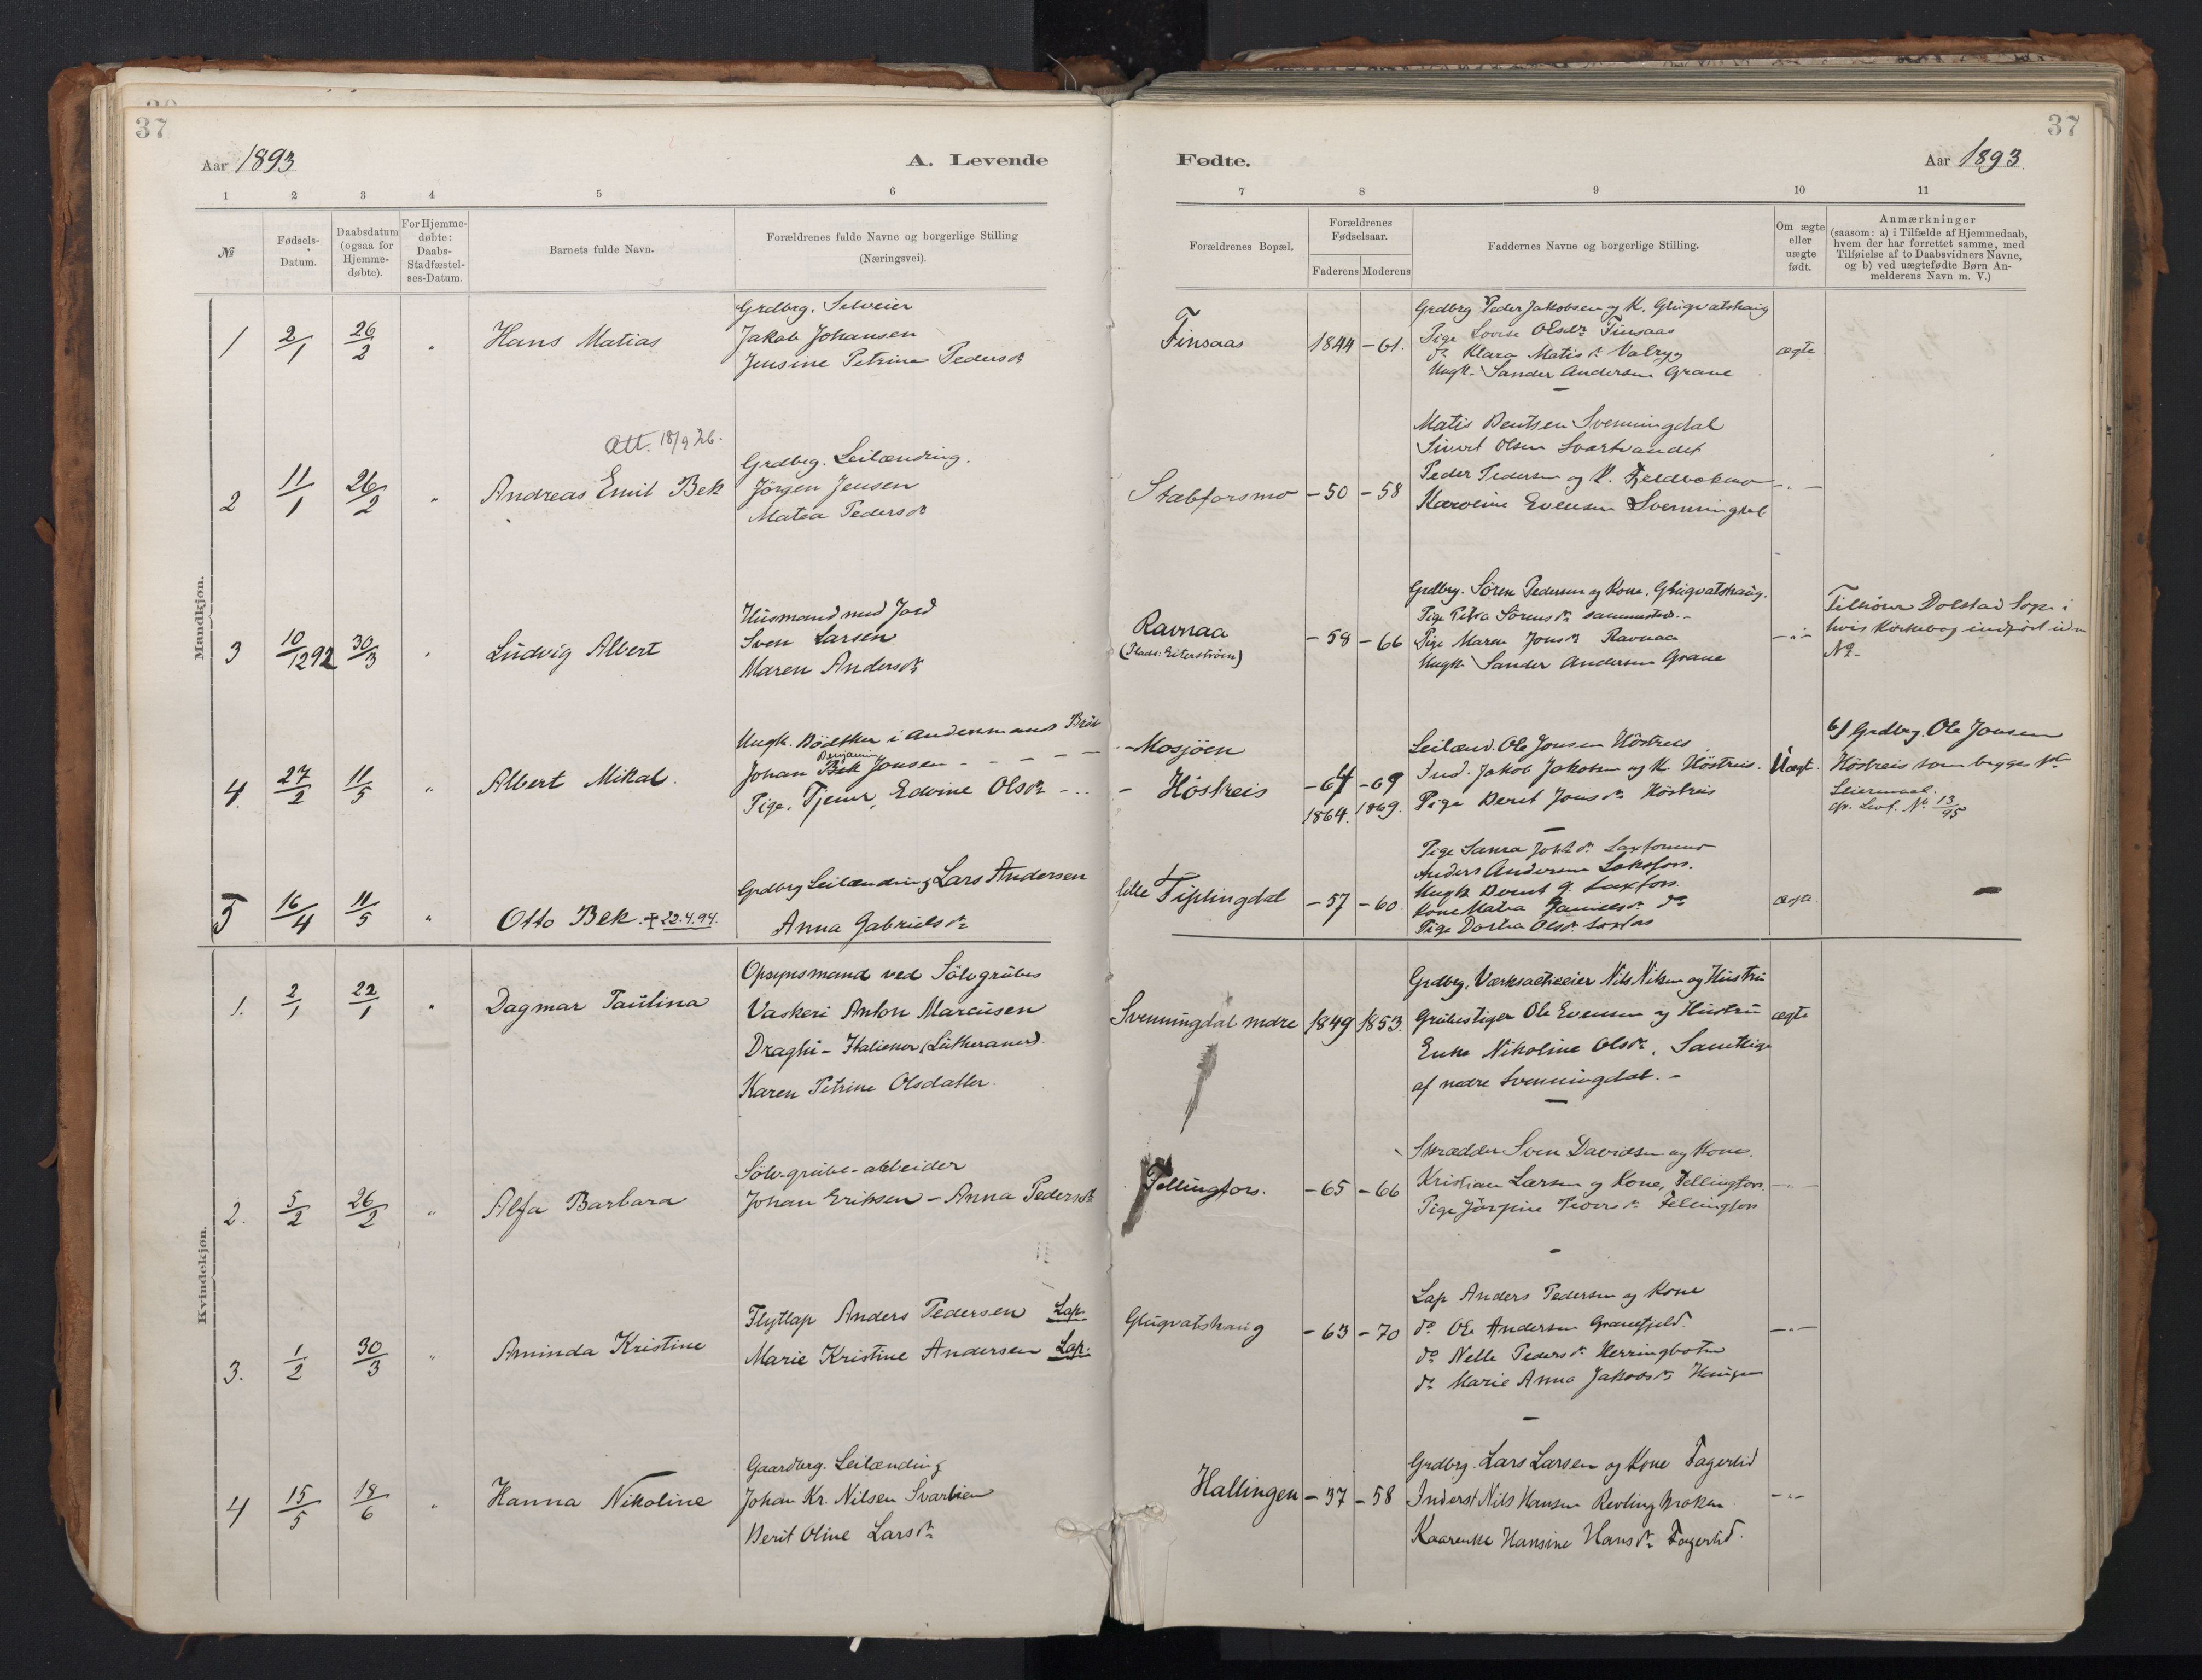 37
Aar 1893
A. Levende
1 2 3 4 5 6
№
Fødsels-
Datum.
Daabsdatum
(ogsaa for
Hjemme-
døbte).
For Hjemme-
døbte:
Daabs-
Stadfæstel-
ses-Datum.
Barnets fulde Navn.
Forældrenes fulde Navne og borgerlige Stilling
(Næringsvei).
Mandkjøn.
1 2/1 26/2 " Hans Matias
Grdbrg. Selveier
Jakob Johansen
Jensine Petrine Pedersdr
Att. 18/9 26.
2 11/1 26/2 " Andreas Emil Bek
Grdbrg. Leilænding.
Jörgen Jensen
Matea Pedersdr
3 10/1292 30/3 " Ludvig Albert
Husmand med Jord
Sven Larsen
Maren Andersdr
4. 27/2 11/5 " Albert Mikal.
Ungk. Bödtker i Andenmands Bröd
Benjamin
Johan Bek Jonsen - - - - -
Pige, Tjener, Edvine Olsdr - . .
5 16/4 11/5 " Otto Bek. † 22.4.94.
Grdbrg Leilænding Lars Andersen
Anna Gabrielsdr
Kvindekjøn.
1. 2/1 22/1 " Dagmar Paulina
Opsynsmand ved Sölvgrubes
Vaskeri Anton Marcusen
Draghi - Italiener (Lutheraner).
Karen Petrine Olsdatter.
2. 5/2 26/2 " Alfa Barbara
Sölv-grube-arbeider
Johan Eriksen - Anna Pedersdr
3. 1/2 30/3 " Aminda Kristine
Flytlap Anders Pedersen Lap.
Marie Kristine Andersen Lap.
4 15/5 18/6 " Hanna Nikoline
Gaardbrg. Leilænding
Johan Kr. Nilsen Svartien
Berit Oline Larsdr
37
Fødte.
Aar 1893.
7 8 9 10 11
Forældrenes Bopæl.
Forældrenes
Fødselsaar.
Faderens Moderens
Faddernes Navne og borgerlige Stilling.
Om ægte
eller
uægte
født.
Anmærkninger
(saasom: a) i Tilfælde af Hjemmedaab,
hvem der har forrettet samme, med
Tilføielse af to Daabsvidners Navne,
og b) ved uægtefødte Børn An-
melderens Navn m. V.)
Finsaas 1844 - 61.
Grdbrg Peder Jakobsen og K. Glugvatshaug
Pige Lovise Olsdr Finsaas
do Klara Matisdr Valryg
Ungk. Sander Andersen Grane
ægte
Matis Bentsen Svenningdal
Sivert Olsen Svartvandet
Stabforsmo - 50 - 58
Peder Pedersen og K.
Karoline Evensen Svenningdal
- " -
Ravnaa
(Plads: Eiterströen)
- 58 - 66
Grdbrg. Sören Pedersen og Kone, Glugvatshaug.
Pige Petra Sörensdr sammested. -
Pige Maren Jonsdr Ravnaa
Ungk. Sander Andersen Grane
- " -
Tilhörer Dolstad Sogn i
hvis Kirkebog indfört uden
No -
Mosjöen
- Höstreis
- 64 - 69
1864. 1869.
Leilænd. Ole Jonsen Höstreis
Ind. Jakob Jakobsen og K. Höstreis.
Pige Berit Jonsdr Höstreis
Uægt.
b) Grdbrg. Ole Jonsen
Höstreis som begges 1ste
Leiermaal.
cfr. Levf. No 13/95
lille Fiplingdal - 57 - 60.
Pige Sanna Johsdr Laxforsmo
Anders Andersen Laksfors.
Ungk Bernt G. Laxfors.
Kone Matea Danielsdr do
Pige Dortea Olsdr Laxfors
ægte
-
Svenningdal nedre 1849 1853.
Grdbrg. Værksacheier Nils Nilsen og Hustru
Grubestiger Ole Evensen og Hustru
Enke Nikoline Olsdr. Samtlige
af nedre Svenningdal. -
ægte
Fellingfors. - 65 - 66
Skrædder Sven Davidsen og Kone.
Kristian Larsen og Kone, Fellingfors.
Pige Jörgine Pedersdr Fellingfors
- " -
Glugvatshaug - 63 - 70
Lap Anders Pedersen og Kone
do Ole Andersen Granefjeld.
do Nelle Pedersdr Herringbotn
do Marie Anna Jakobsdr Haugen
- " -
Hallingen - 37 - 58
Grdbrg. Lars Larsen og Kone Fagerlid
Inderst Nils Hansen
Kaarenke Hansine Hansdr Fagerlid.
- " -